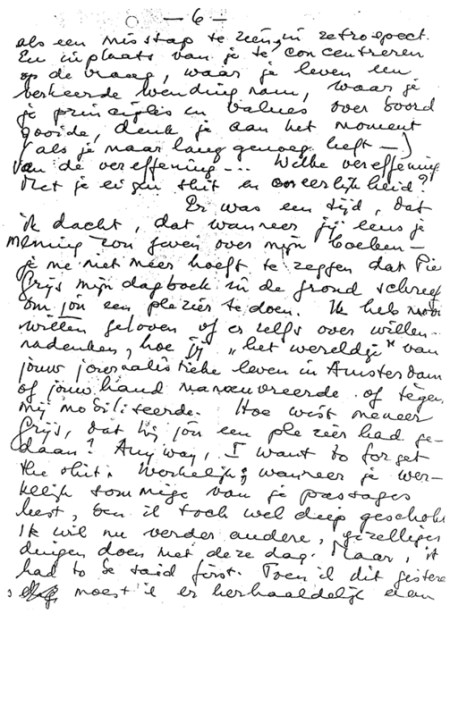 — 6 —
als een misstap te zien, in retrospect.
En inplaats van je te concentreren
op de vraag, waar je leven een
verkeerde wending nam, waar je
je principles en values over boord
gooide, denk je aan het moment
(als je maar lang genoeg leeft —)
van de vereffening --- Welke vereffening
Met je eigen shit en oneerlijkheid?
Er was een tijd, dat
ik dacht, dat wanneer jij eens je
mening zou geven over mijn boeken —
je me niet meer hoeft te zeggen dat Pie
Grijs mijn dagboek in de grond schreef
om jou een plezier te doen. Ik heb nooit
willen geloven of er zelfs over willen
nadenken, hoe jij „het wereldje" van
jouw journalistieke leven in Amsterdam
of jouw hand manoeuvreerde of tegen
mij mobiliteerde. Hoe wist meneer
Grijs, dat hij jou een plezier had ge-
daan? Anyway, I want to forget
the shit. Werkelijk, wanneer je wer-
kelijk sommige van je passages
leest, ben ik toch wel diep geschokt
Ik wil nu verder andere, gezelliger
dingen doen met deze dag. Maar, it
had to be said first. Toen ik dit gistere
moest ik er herhaaldelijk aan